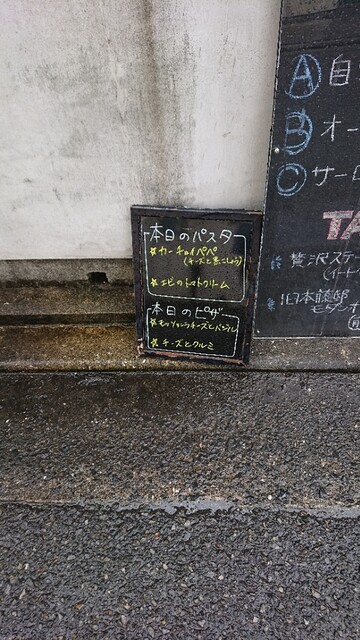 本日のパスタ
☆カーチョエペペ
(チーズと黒こしょう)
☆エビのトマトクリーム
本日のピザ
☆モッツァレラチーズとバジル
☆チーズとクルミ
Ⓐ自
Ⓑオー
Ⓒサーロ
TA
贅沢ステー
(イート
旧本藤邸
モダン